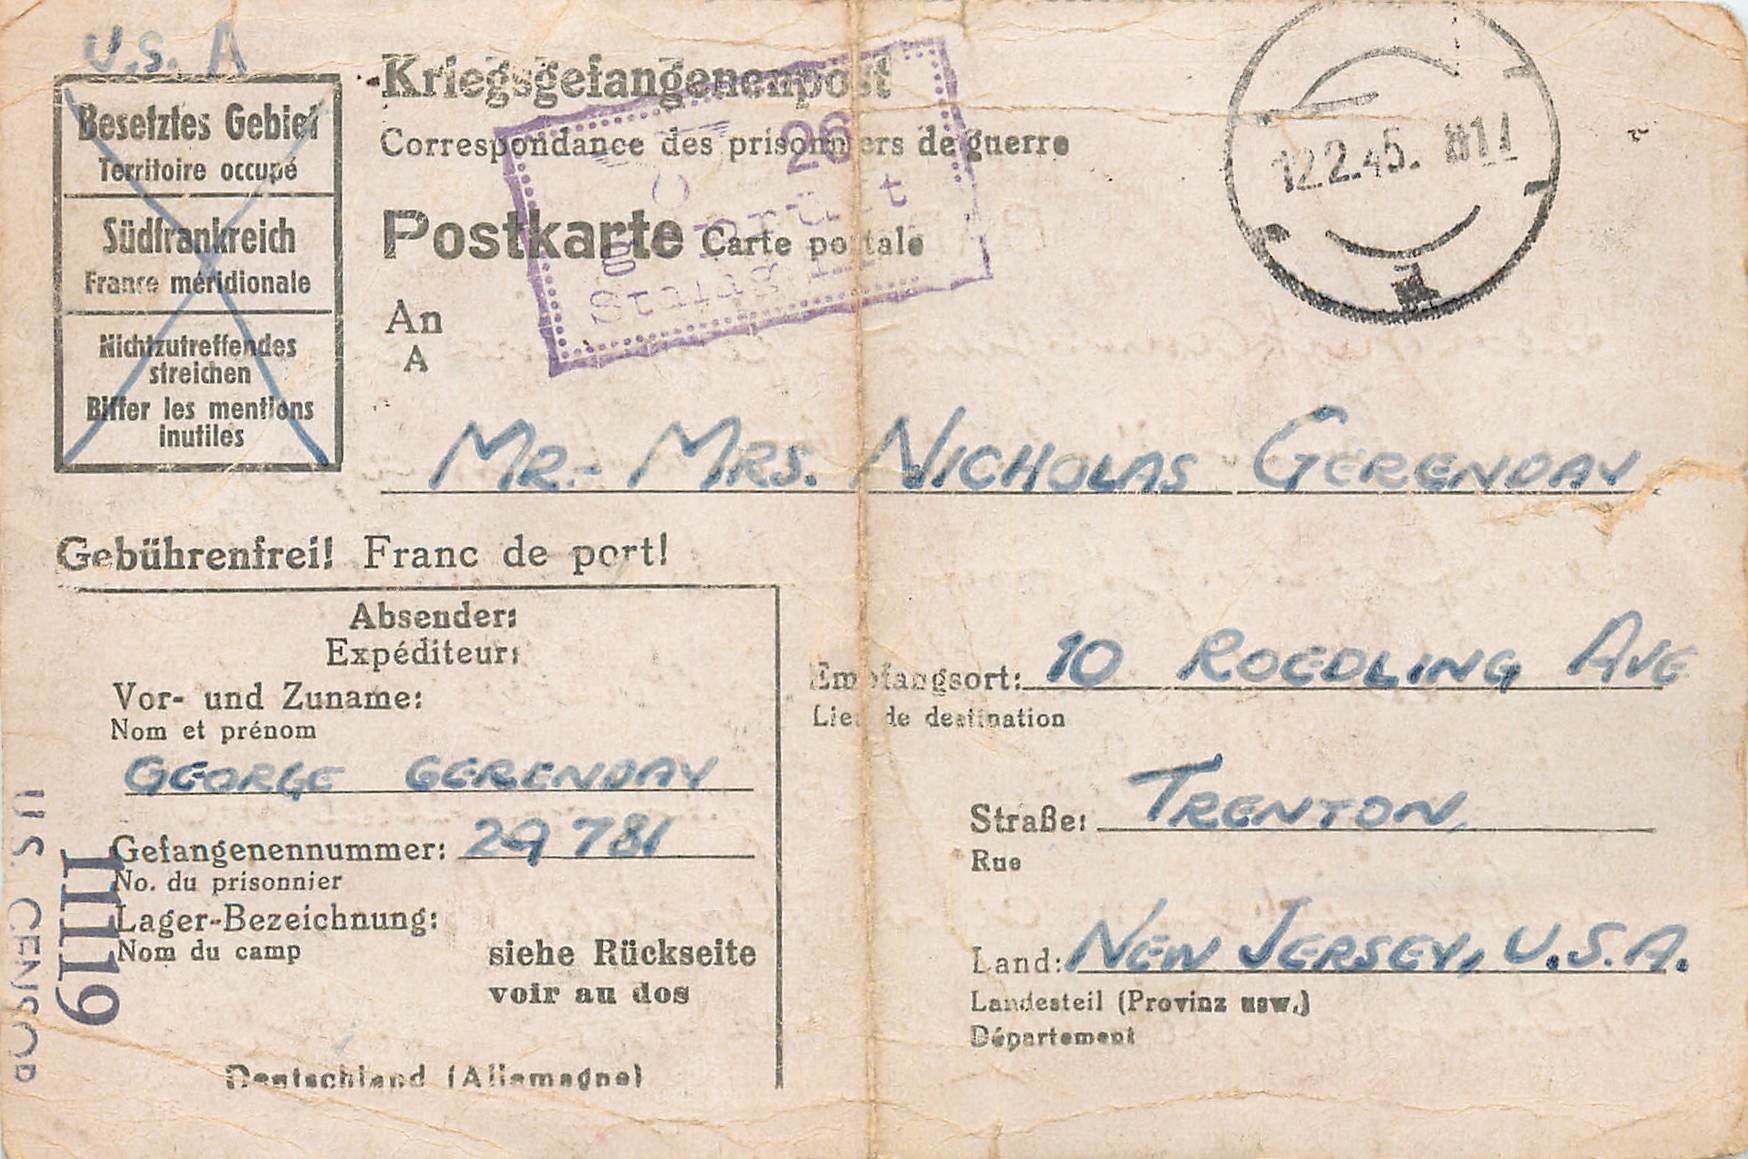 U.S. A
Besetztes Gebiet
Territoire occupé
Südfrankreich
France méridionale
Nichtzutreffendes
streichen
Biffer les mentions
inutiles
Kriegsgefangenenpost
Correspondance des prisonniers de guerre
Postkarte Carte postale
26
geprüft
Stalag
12.2.45.
An
A
MR.- MRS. NICHOLAS GERENDAY
Gebührenfrei! Franc de port!
Absender:
Expéditeur:
Vor- und Zuname:
Nom et prénom
GEORGE GERENDAY
Gefangenennummer: 29781
No. du prisonnier
Lager-Bezeichnung:
Nom du camp
siehe Rückseite
voir au dos
Deutschland (Allemagne)
U.S. CENSOR
11119
Empfangsort: 10 ROEDLING AVE
Lieu de destination
Straße: TRENTON,
Rue
Land: NEW JERSEY, U.S.A.
Landesteil (Provinz usw.)
Département